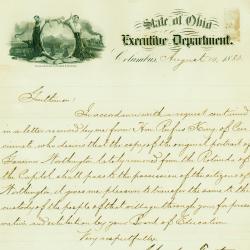 State of Ohio
Executive Department.
Columbus, August
Gentlemen:
In accordance with a request contained
in a letter received by me from Hon Rufus King, of Cin
cinnati, who desires that the copy of the original portrait of
Governor Worthington lately removed from the Rotunda of
the Capitol shall pass to the possession of the citizens of
Worthington, it gives me pleasure to transfer the same to the
custody of the people of that village through you for preser
vation and exhibition by your Board of Education.
Very respectfully,